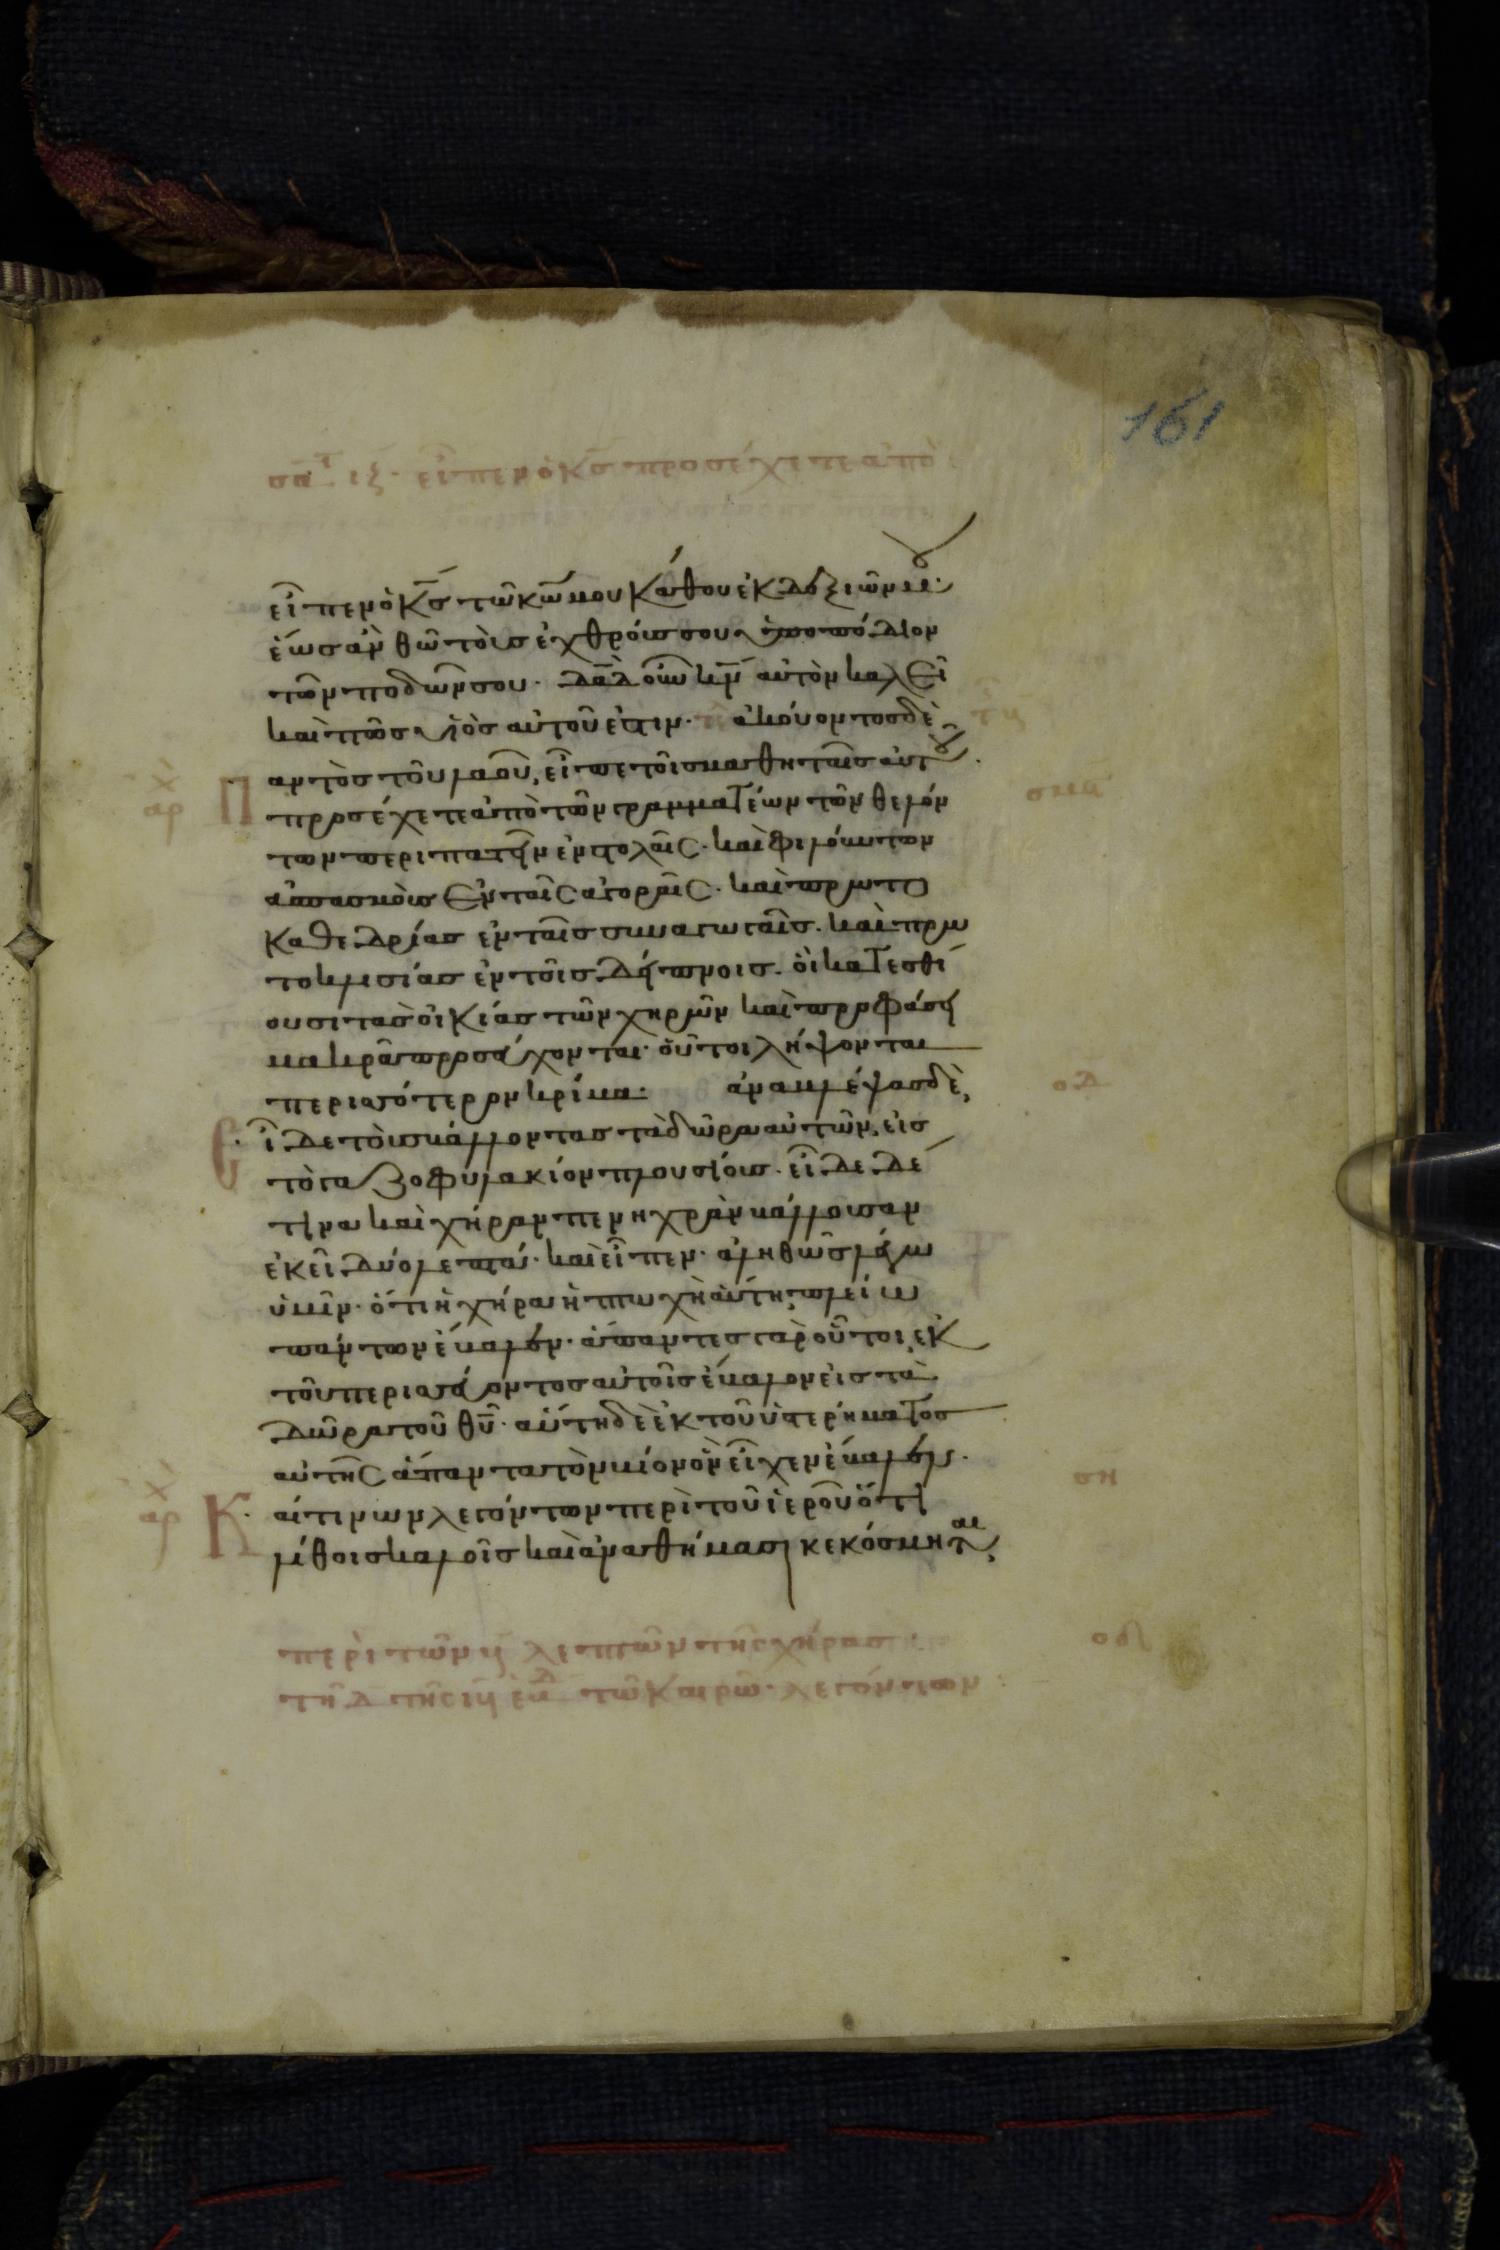 161
σα ιζ. εἶπεν ὁ κς προσέχετε ἀπὸ
εἶπεν ὁ κς τῶ κω μου κάθου ἐκ δεξιῶν μου·
ἕως ἂν θῶ τοὺς ἐχθρούς σου ὑποπόδιον
τῶν ποδῶν σου. δαδ οὖν κν αὐτὸν καλεῖ
καὶ πῶς υἱὸς αὐτοῦ ἐστιν. ἀκούοντος δὲ
αντὸς τοῦ λαοῦ, εἶπε τοῖς μαθηταῖς αὐτοῦ.
προσέχετε ἀπὸ τῶν γραμματέων τῶν θελόν
των περιπατεῖν ἐν στολαῖς. καὶ φιλούντων
ἀσπασμοὺς ἐν ταῖς ἀγοραῖς. καὶ πρωτο
καθεδρίας ἐν ταῖς συναγωγαῖς. καὶ πρω
τοκλισίας ἐν τοῖς δείπνοις. οἱ κατεσθί
ουσι τὰς οἰκίας τῶν χηρῶν καὶ προφάσει
μακρὰ προσεύχονται· οὗτοι λήψονται
περισσότερον κρίμα· ἀναβλέψας δὲ,
εἶδε τοὺς βάλλοντας τὰ δῶρα αὐτῶν, εἰς
τὸ γαζοφυλάκιον πλουσίους. εἶδε δέ
τινα καὶ χήραν πενηχρὰν βάλλουσαν
ἐκεῖ δύο λεπτά· καὶ εἶπεν. ἀληθῶς λέγω
ὑμῖν. ὅτι ἡ χήρα ἡ πτωχὴ αὕτη, πλείω
πάντων ἔβαλεν. ἅπαντες γὰρ οὗτοι, ἐκ
τοῦ περισσεύοντος αὐτοῖς ἔβαλον εἰς τὰ
δῶρα τοῦ θυ. αὕτη δὲ ἐκ τοῦ ὑστερήματος
αὐτῆς ἅπαντα τὸν βίον ὃν εἶχεν ἔβαλεν.
καί τινων λεγόντων περὶ τοῦ ἱεροῦ ὅτι
λίθοις καλοῖς καὶ ἀναθήμασι κεκόσμηται,
περὶ τῶν β λεπτῶν τῆς χήρας
τῆ δ τῆς ιβ εβδ τῶ καιρῶ. λεγόντων